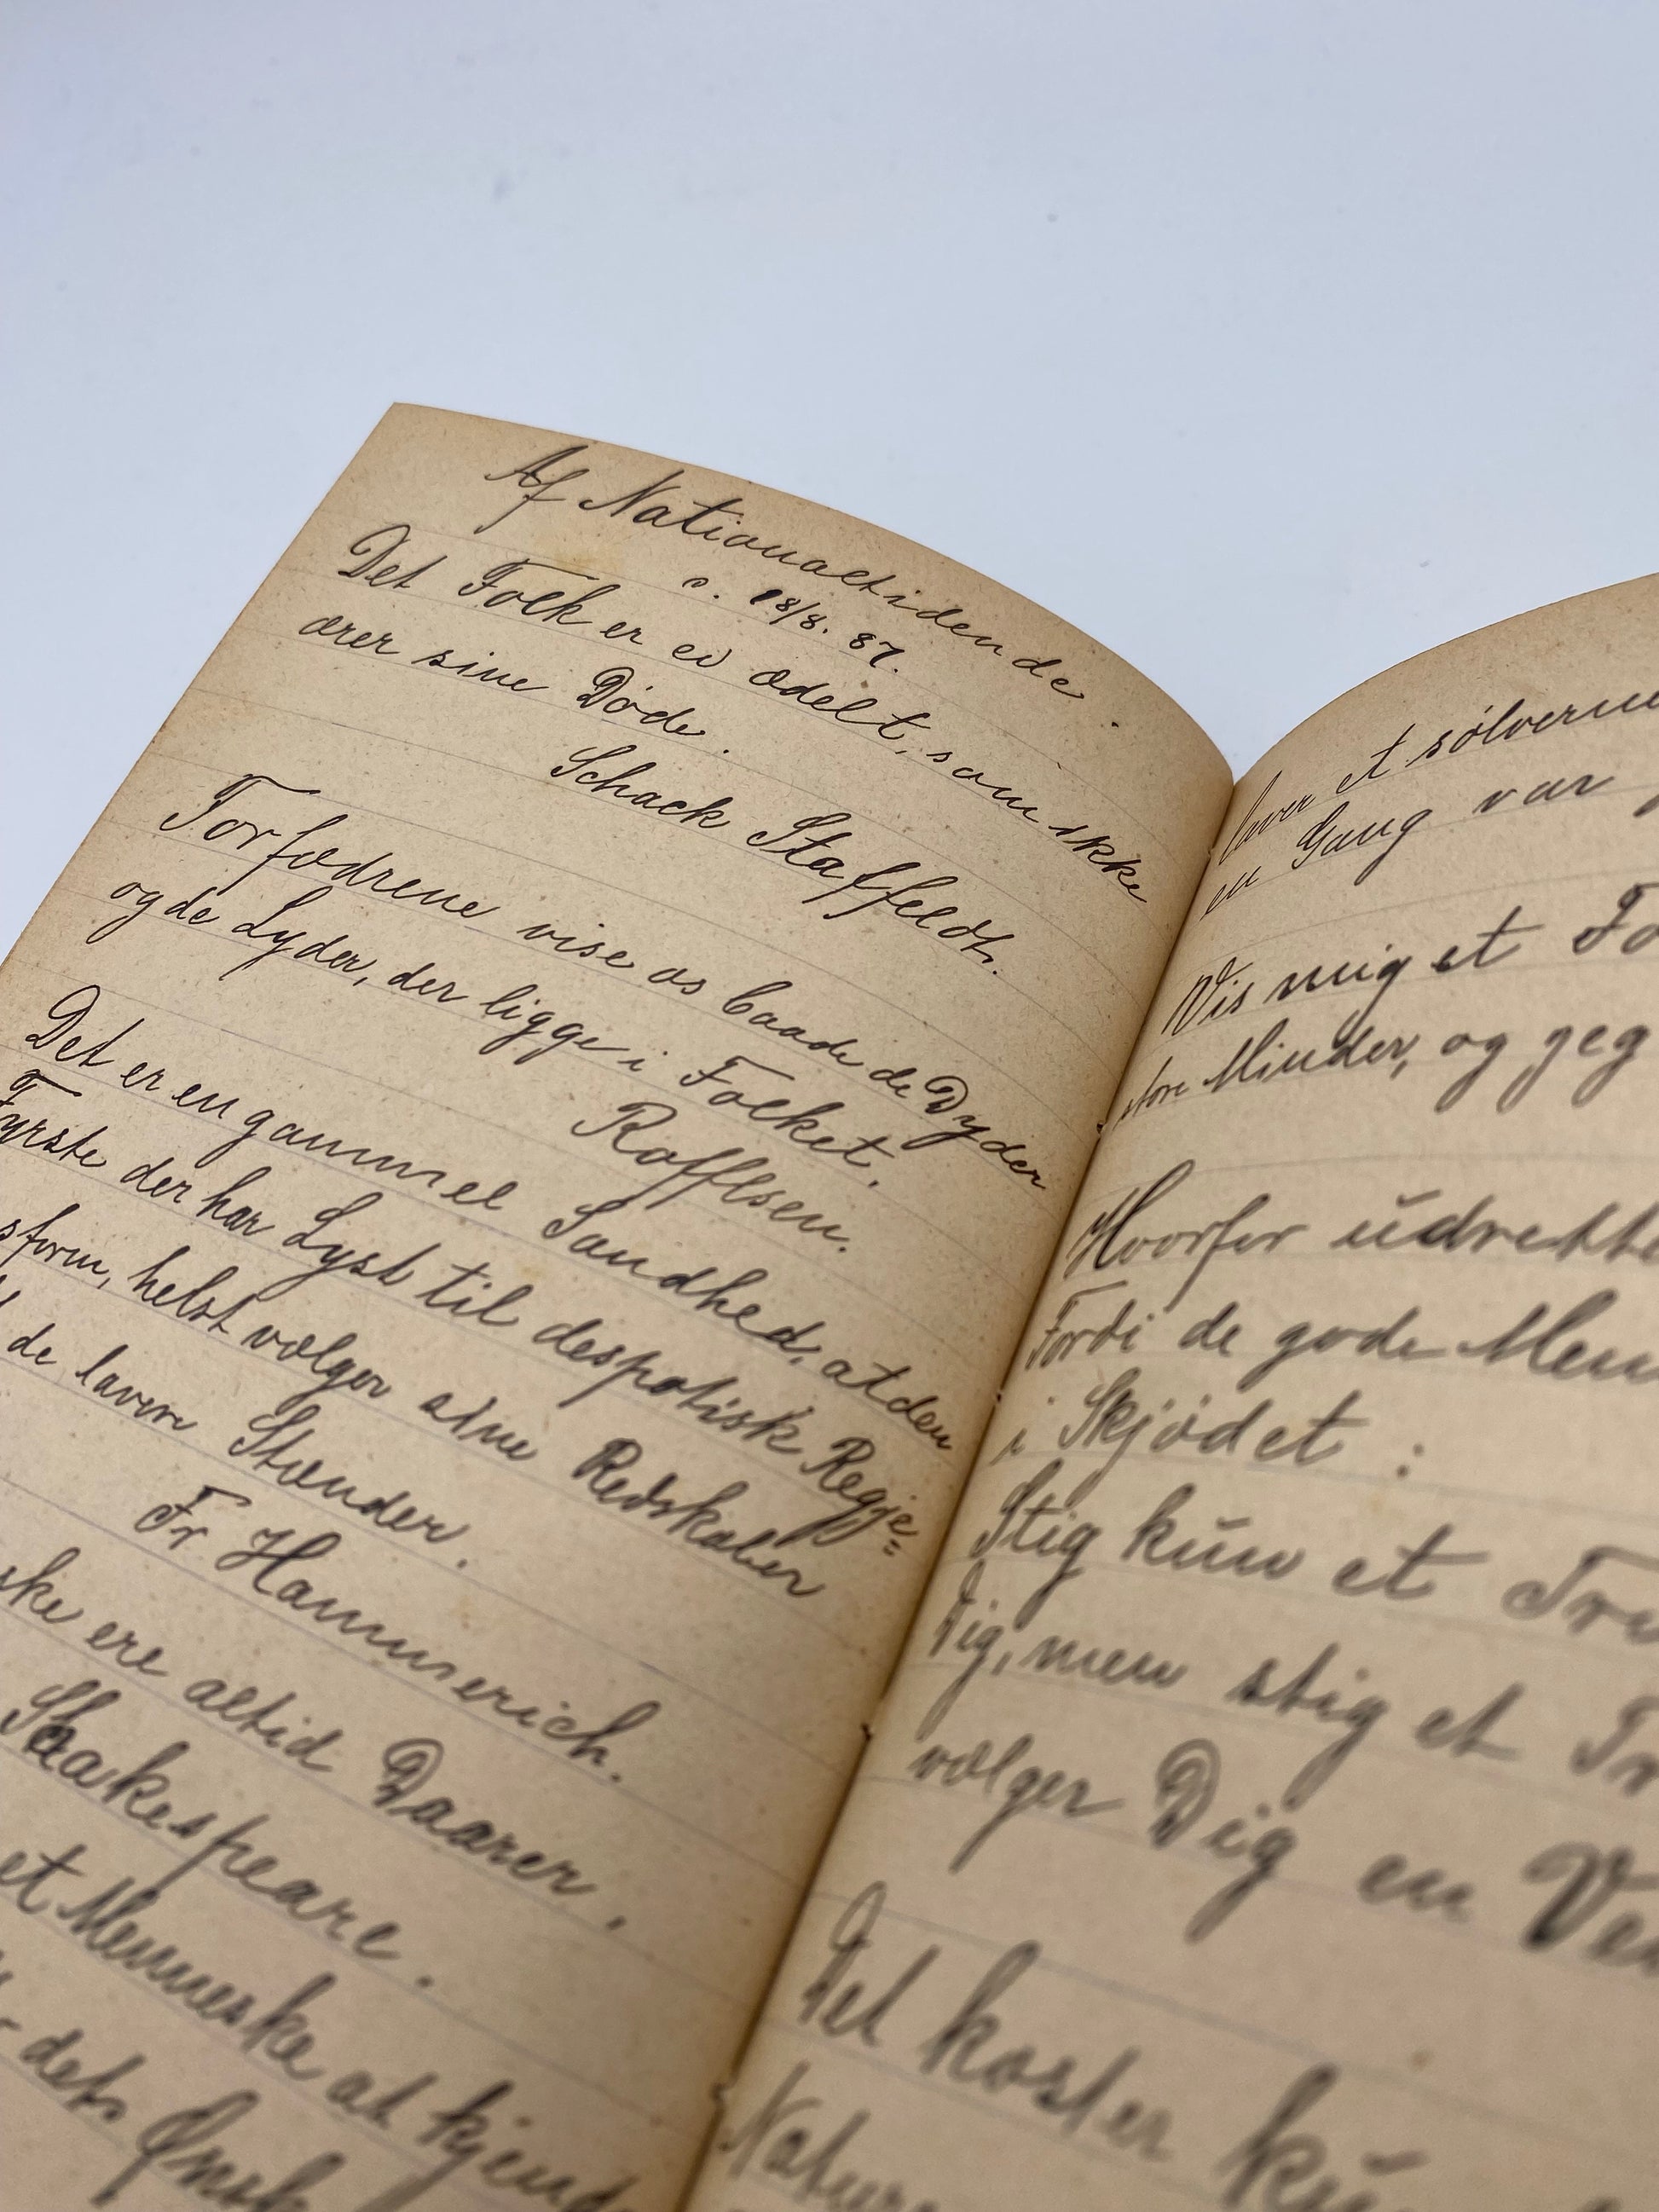 Af Nationaltidende.
c. 18/8. 87.
Det Folk er ei ædelt, som ikke
ærer sine Døde.
Schack Staffeldt.
Forfædrene vise os baade de Dyder
og de Lyder, der ligge i Folket.
Rofflsen.
Det er en gammel Sandhed, at den
Fyrste der har Lyst til despotisk Regje=
sform, helst vælger sine Redskaber
de lavere Stænder.
Fr Hammerich.
ske ere altid Daarer.
Shakespeare.
et Menneske at kjend
det Ønsk
laver et sølverne
en Gang var
Vis mig et Fo
store Minder, og jeg
Hvorfor ŭdrette
Fordi de gode Men
i Skjødet :
Stig kŭn et Tri
Dig, men stig et Tr
vælger Dig en Ven
Det koster kŭ
Nature